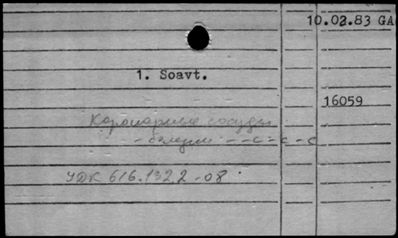 10.02.83 GA
1. Soavt.
16059
Коронарные сосуды
УДК 616.132.2-08